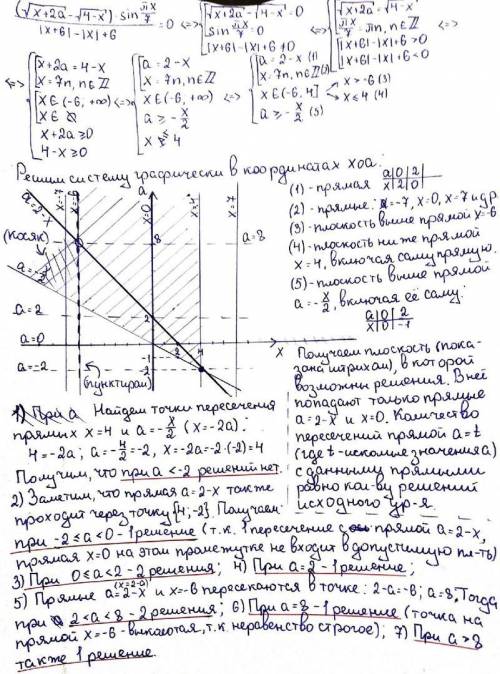 (√x+2a - √4-x)·sin πx/7 / |x+6|-|x|+6 = 0 <=> [√x+2a - √4-x = 0 <=> [√x+2a = √4-x <=>
sin πx/7 = 0
πx/7 = πn, n∈Z
|x+6|-|x|+6≠0
|x+6|-|x|+6>0
|x+6|-|x|+6<0
<=> [x+2a=4-x
x=7n, n∈Z
x∈(-6, +∞) <=>
x∈∅
x+2a≥0
4-x≥0
[a=2-x
x=7n, n∈Z
x∈(-6, +∞) <=>
a≥-x/2
x≤4
[a=2-x (1)
x=7n, n∈Z (2)
x∈(-6, 4]
x>-6 (3)
x≤4 (4)
a≥-x/2 (5)
Решим систему графически в координатах xoa:
a=2-x
x=-7
x=-6
a
x=0
x=4
x=7
(косяк)
8
a=8
a=-x/2
a=2
2
a=0
2
4
x
a=-2
-1
-2
(пунктирая)
(1)-прямая a|0|2
x|2|0
(2)-прямые: x=-7, x=0, x=7 и др.
(3)-плоскость выше прямой x=-6
(4)-плоскость ниже прямой
x=4, включая саму прямую.
(5)-плоскость выше прямой
a=-x/2, включая её саму:
a|0|2
x|0|-1
Получаем плоскость (пока-
зана штрихам), в которой
возможны решения. В неё
попадают только прямые
a=2-x и x=0. Количество
пересечений прямой a=t
(где t-искомые значения a)
с данными прямыми
равно кол-ву решений
исходного ур-я.
1) При a Найдем точки пересечения
прямых x=4 и a=-x/2 (x=-2a):
4=-2a; a=-4/2=-2, x=-2a=-2·(-2)=4
Получим, что при a<-2 решений нет.
2) Заметим, что прямая a=2-x также
проходит через точку [4;-2]. Получаем:
при -2≤a<0 - 1 решение (т.к. 1 пересечение с прямой a=2-x,
прямая x=0 на этом промежутке не входит в допустимую пл-ть)
3) При 0≤a<2 - 2 решения; 4) При a=2 - 1 решение;
(x=2-a)
5) Прямые a=2-x и x=-6 пересекаются в точке: 2-a=-6; a=8. Тогда
при 2<a<8 - 2 решения; 6) При a=8 - 1 решение (точка на
прямой x=-6 - выколотая, т.к. неравенство строгое); 7) При a>8
также 1 решение.